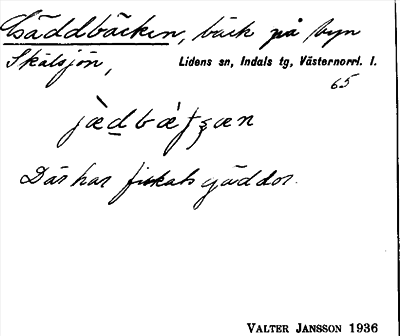 Gäddbäcken, bäck på byn
Skälsjön, Lidens sn, Indals tg, Västernorrl. l.
65
jæ̀d̲bæ̀tʂæn
Där har fiskats gäddor.
VALTER JANSSON 1936